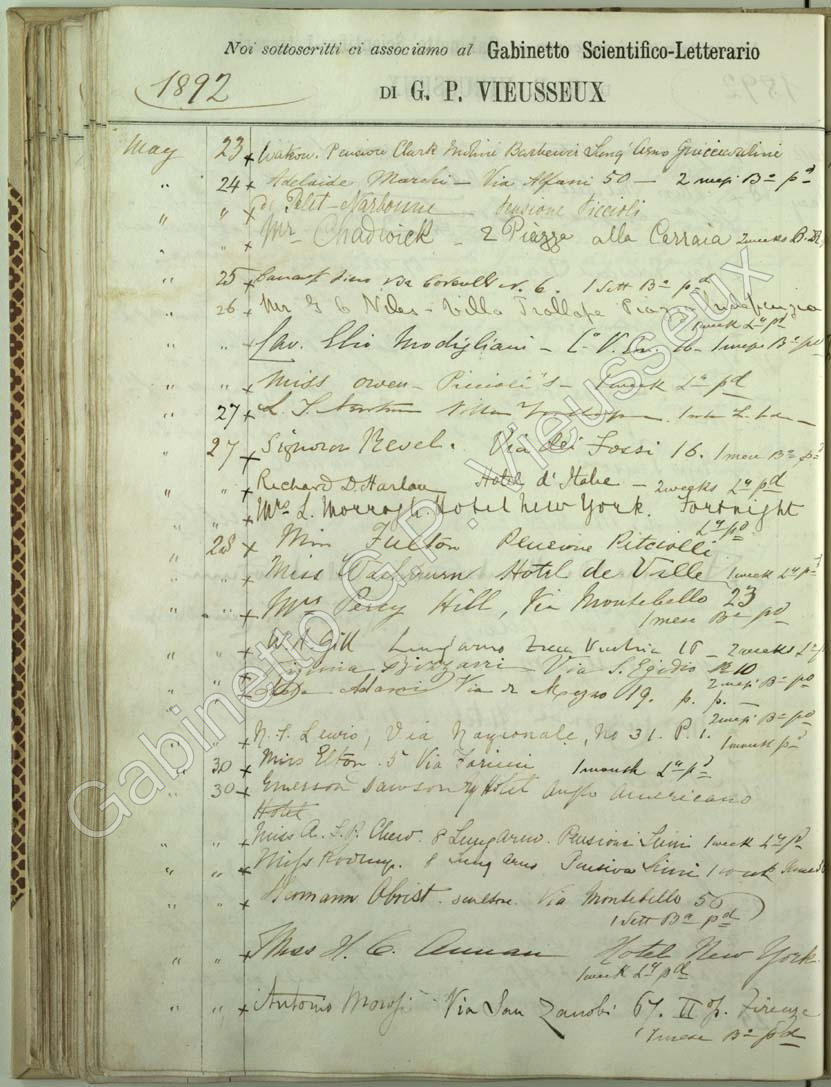 Noi sottoscritti ci associamo al Gabinetto Scientifico-Letterario
1892
DI G. P. VIEUSSEUX
May 23 x Pension Clark Molini Lung' Arno Guicciardini
" 24 x Adelaide Marchi - Via Alfani 50 - 2 mesi Ba pd
" " x de Pelet-Narbonne Pensione Piccioli
" " x Mr Chadwick - 2 Piazza alla Carraia 2 weeks
" 25 x N. 6. 1 Sett Ba pd
" 26 x Mr G C Niles - Villa Trollope Piazza Indipendenza
1 week La pd
" " x Cav. Elio Modigliani - 16 - 1 mese Ba pd
" " x Miss Owen - Piccioli's - 1 week La pd
" 27 x Villa
" 27 x Signora Revel. Via dei Fossi 16. 1 mese Ba pd
" " x Richard D. Harlan Hotel d'Italie - 2 weeks La pd
" " x Mrs L. Morrogh. Hotel New York. Fortnight
La pd
" 28 x Miss Fulton Pensione Pitciolli
" " x Miss Washburn Hotel de Ville 1 week La pd
" " x Mrs Percy Hill, Via Montebello 23
1 mese Ba pd
" " x W A Gill Lungarno 2 weeks La
" " x Bizzarri Via S. Egidio N 10
2 mesi Ba pd
" " x Adami Via di Mezzo 19. p. p. -
2 mesi Ba pd
" " x N. S. Lewis, Via Nazionale, No 31. P. 1.
1 month pd
" 30 x Miss Elton. 5 Via 1 month La pd
" 30 x Emerson Dawson Hotel Anglo Americano
Hotel
" " x Miss A. S. P. Chew. 8 Lungarno. Pensione Simi 1 week La pd
" " x Miss 8 Lung'Arno Pensione Simi 1 week
" " x Hermann Obrist. scultore. Via Montebello 56
1 Sett Ba pd
" " x Miss H. C. Annan Hotel New York.
1 week La pd
" " x Antonio Morosi Via San Zanobi 67. II p. Firenze
1 mese Ba pd
Gabinetto G.P. Vieusseux